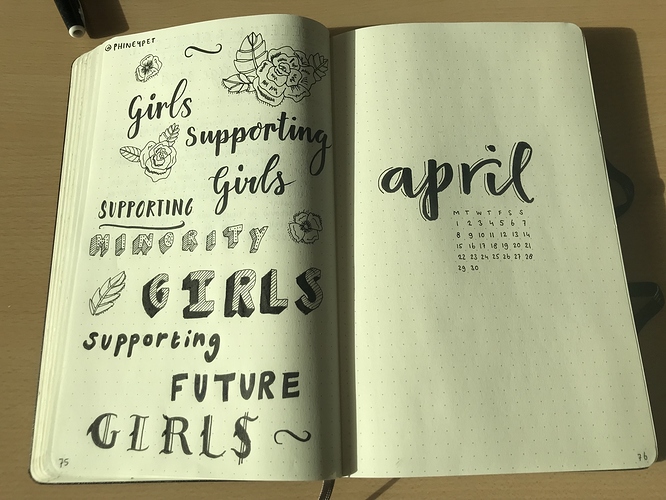 @PHINEYPET
Girls
Supporting
Girls
SUPPORTING
MINORITY
GIRLS
Supporting
FUTURE
GIRLS
75
april
M T W T F S S
1 2 3 4 5 6 7
8 9 10 11 12 13 14
15 16 17 18 19 20 21
22 23 24 25 26 27 28
29 30
76